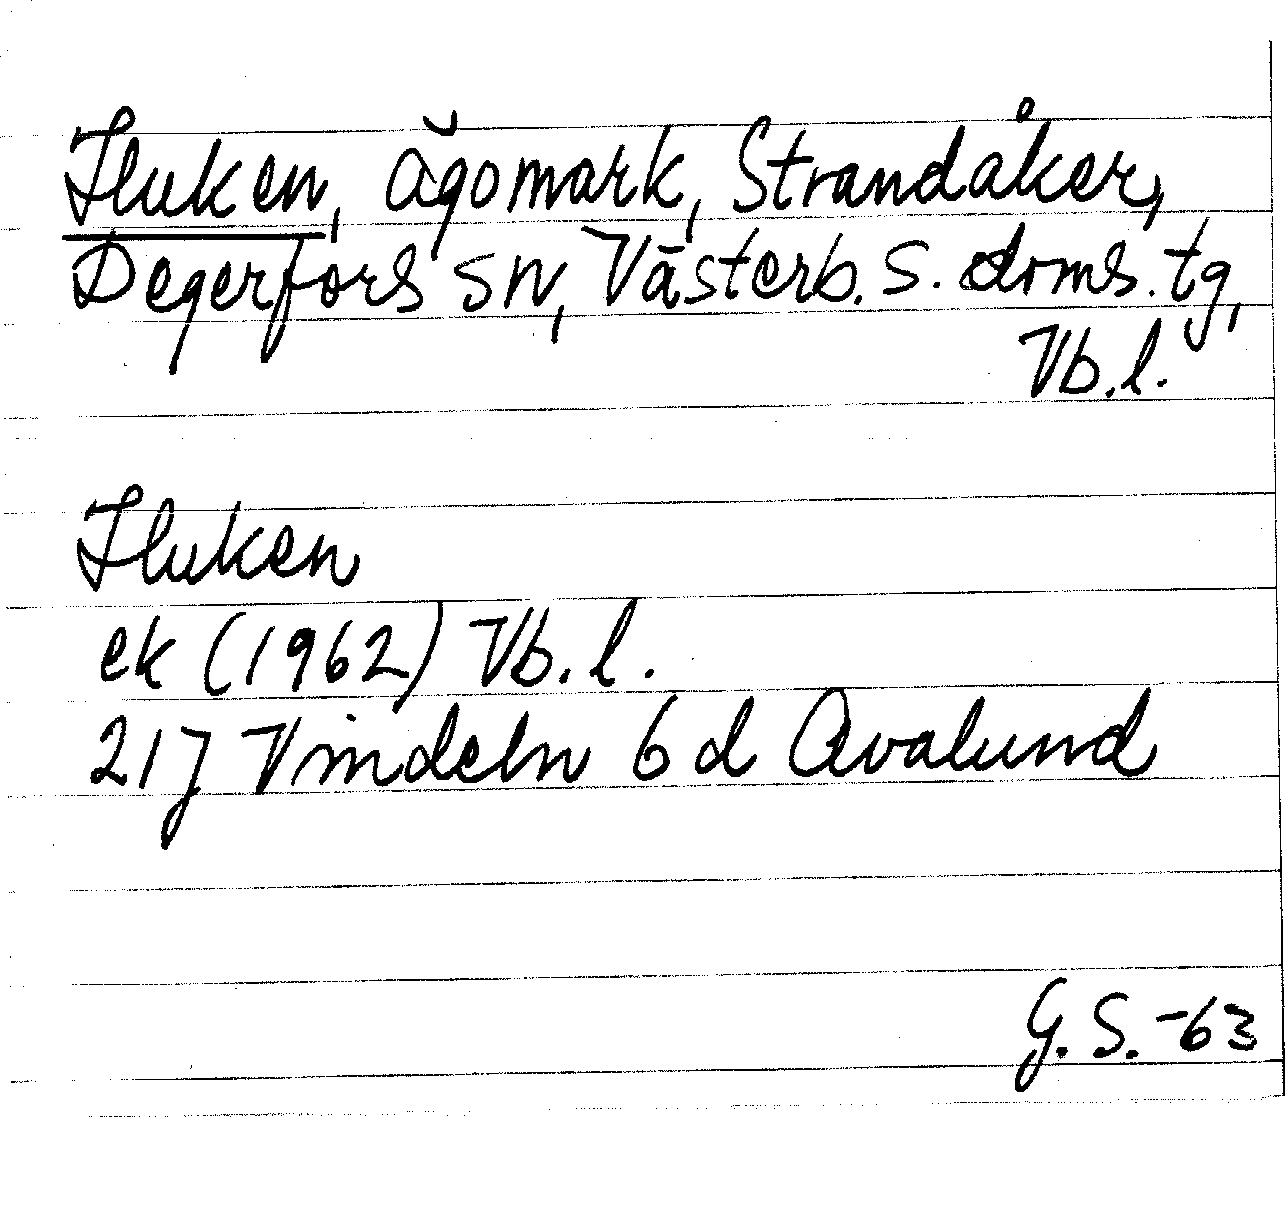 Fluken, ägomark, Strandåker,
Degerfors sn, Västerb. s. doms. tg,
Vb. l.
Fluken
ek (1962) Vb. l.
21J Vindeln 6d Avalund
G. S. -63